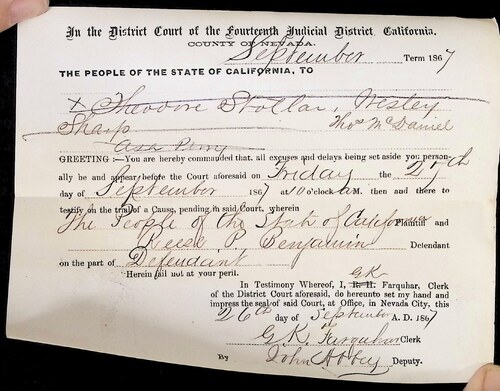 In the District Court of the Fourteenth Judicial District, California.
COUNTY OF NEVADA.
September Term 1867
THE PEOPLE OF THE STATE OF CALIFORNIA, TO
x Theodore Stollar, Wesley
Sharp Thos McDaniel
Asa Perry
GREETING:—You are hereby commanded that, all excuses and delays being set aside you person-
ally be and appear before the Court aforesaid on Friday the 27th
day of September 1867 at 10 o'clock A M, then and there to
testify on the trial of a Cause, pending in said Court, wherein
The People of the State of California Plaintiff and
Reese P. Benjamin Defendant
on the part of Defendant
Herein fail not at your peril.
G K
In Testimony Whereof, I, R. H. Farquhar, Clerk
of the District Court aforesaid, do hereunto set my hand and
impress the seal of said Court, at Office, in Nevada City, this
26th day of September A. D. 1867
G. K. Farquhar Clerk
By John Abbey Deputy.